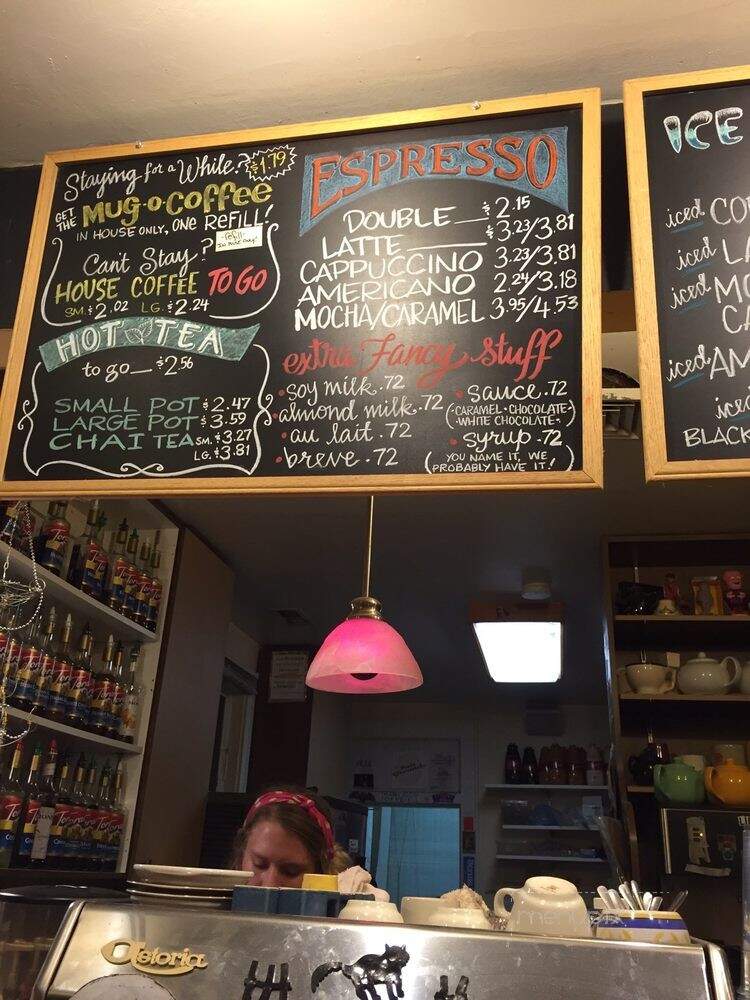 Staying for a While? $1.79
GET THE MUG-O-COFFEE
IN HOUSE ONLY, ONE REFILL!
-refill-
In House Only!
Can't Stay?
HOUSE COFFEE TO GO
SM. $2.02 LG. $2.24
HOT TEA
to go $2.56
SMALL POT $2.47
LARGE POT $3.59
CHAI TEA SM. $3.27
LG. $3.81
ESPRESSO
DOUBLE $2.15
LATTE $3.23/3.81
CAPPUCCINO 3.23/3.81
AMERICANO 2.24/3.18
MOCHA/CARAMEL 3.95/4.53
extra Fancy stuff
• soy milk .72
• almond milk .72
• au lait .72
• breve .72
• sauce .72
(-CARAMEL • CHOCOLATE-)
-WHITE CHOCOLATE-
• syrup .72
(YOU NAME IT, WE
PROBABLY HAVE IT!)
ICE
iced CO
iced LA
iced MO
CA
iced AM
iced
BLACK
Torani
Astoria